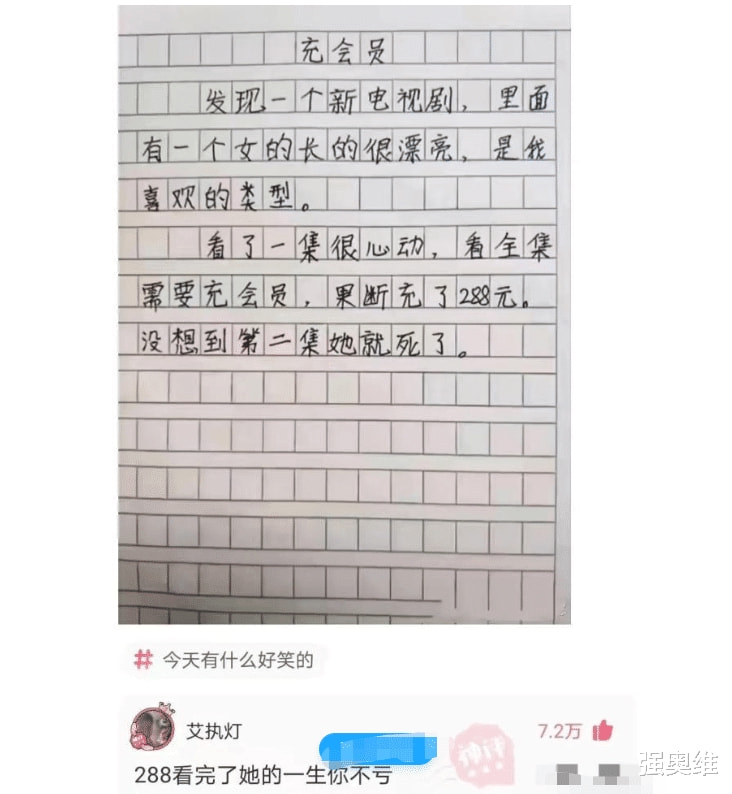 充会员
发现一个新电视剧，里面
有一个女的长的很漂亮，是我
喜欢的类型。
看了一集很心动，看全集
需要充会员，果断充了288元。
没想到第二集她就死了。
# 今天有什么好笑的
艾执灯
7.2万
神评
288看完了她的一生你不亏
强奥维